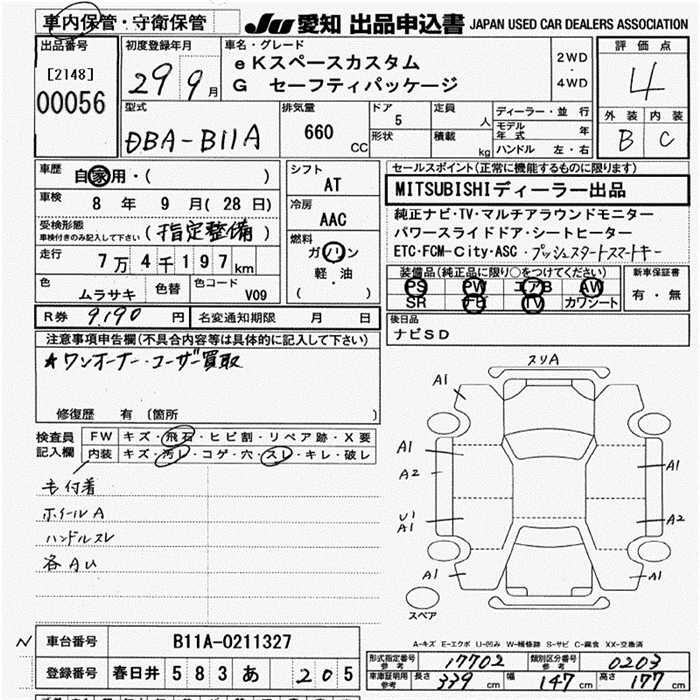 車内保管・守衛保管
JU 愛知 出品申込書 JAPAN USED CAR DEALERS ASSOCIATION
出品番号
[2148]
00056
初度登録年月
29 9月
車名・グレード
eKスペースカスタム
G セーフティパッケージ
2WD
・
4WD
評価点
4
外装 内装
B C
型式
DBA-B11A
排気量
660 CC
ドア
5
形状
定員
人
積載
kg
ディーラー・並行
モデル年式 年
ハンドル 左・右
車歴
自家用・( )
車検
8年 9月(28日)
受検形態
車検付きのみ記入して下さい
(指定整備)
走行
7万4千197km
色
ムラサキ
色替
色コード
V09
シフト
AT
冷房
AAC
燃料
ガソリン
軽・油
( )
セールスポイント(正常に機能するものに限ります)
MITSUBISHIディーラー出品
純正ナビ・TV・マルチアラウンドモニター
パワースライドドア・シートヒーター
ETC・FCM-City・ASC・プッシュスタートスマートキー
装備品(純正品に限り○をつけてください)
PS PW エアB AW
SR ナビ TV カワシート
新車保証書
有・無
後日品
ナビSD
R券 9,190円
名変通知期限 月 日
注意事項申告欄(不具合内容等は具体的に記入して下さい)
★ワンオーナー・ユーザー買取
修復歴 有 〔箇所 〕
検査員
記入欄
FW キズ・飛石・ヒビ割・リペア跡・X要
内装 キズ・汚レ・コゲ・穴・スレ・キレ・破レ
も付着
ホイールA
ハンドルスレ
各AU
スリA
A1
A1
A2
U1
A1
A1
A1
A2
A1
スペア
A-キズ E-エクボ U-凹み W-補修跡 S-サビ C-腐食 XX-交換済
車台番号
B11A-0211327
登録番号
春日井 583 あ 205
形式指定番号
参考
17702
類別区分番号
参考
0203
車庫証明用
参考
長さ 339cm
幅 147cm
高さ 177cm